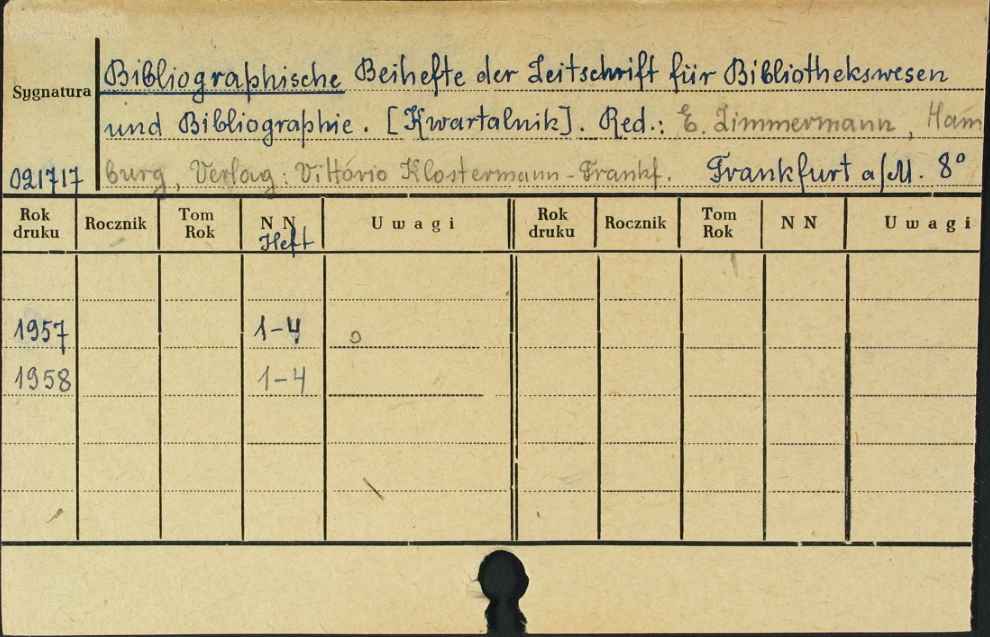 Bibliographische Beihefte der Zeitschrift für Bibliothekswesen
Sygnatura
und Bibliographie. [Kwartalnik]. Red.: E. Zimmermann, Ham
021717 burg, Verlag: Vittório Klostermann-Frankf. Frankfurt a/M. 8°
Rok druku Rocznik Tom Rok N N Heft Uwagi Rok druku Rocznik Tom Rok N N Uwagi
1957 1-4
1958 1-4